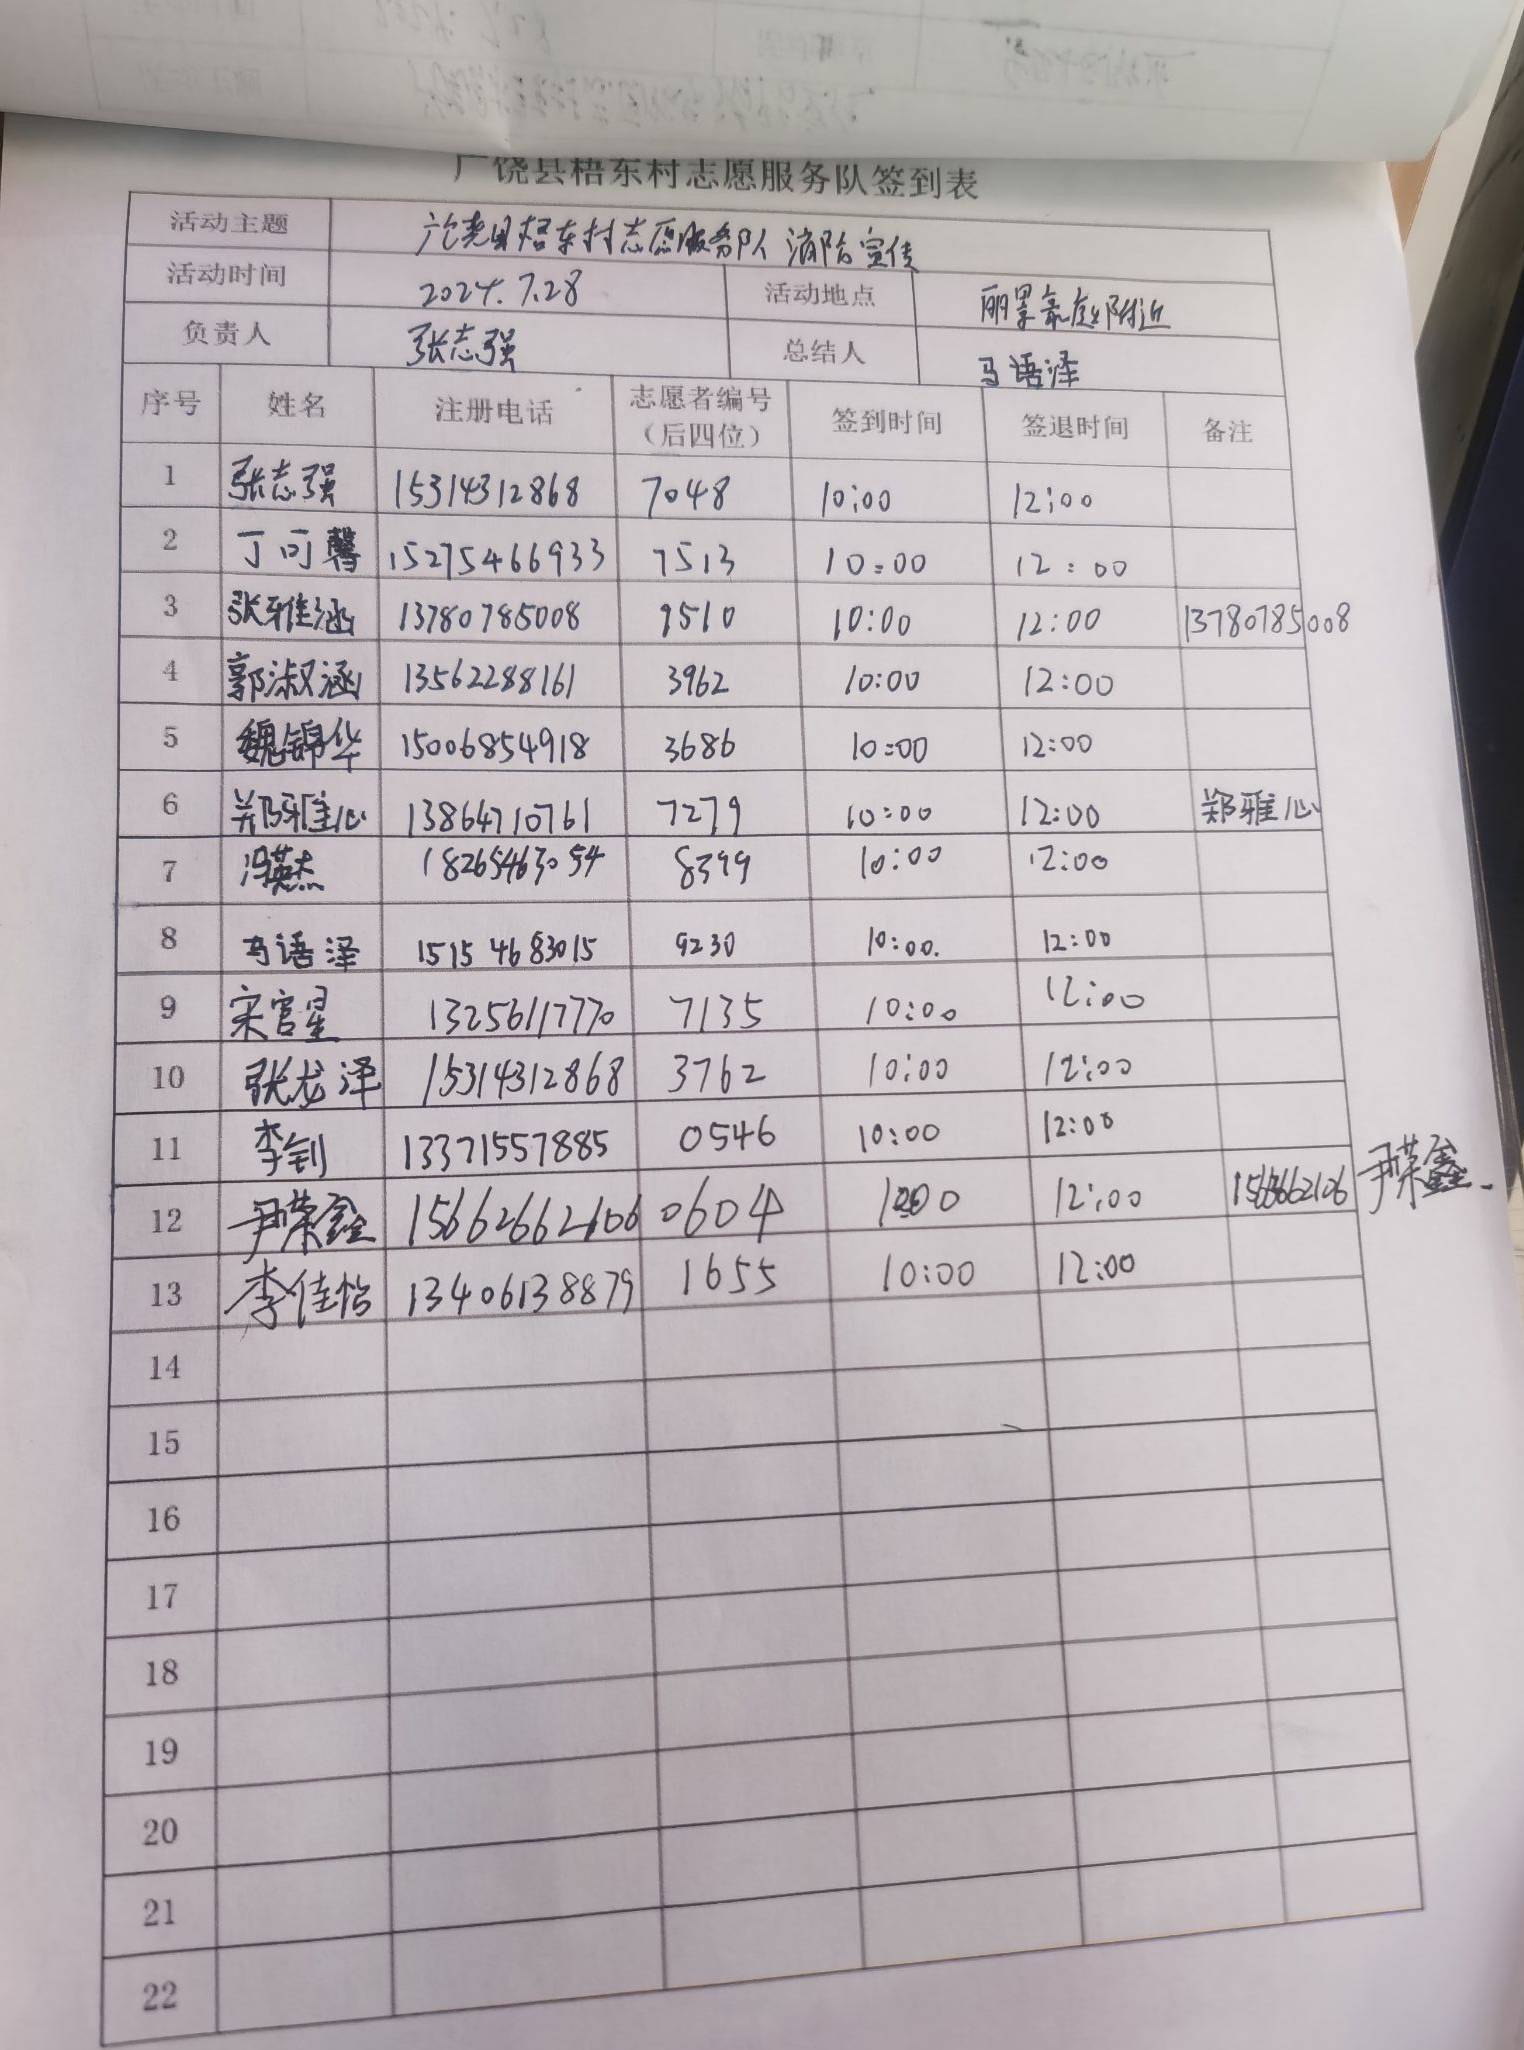 广饶县梧东村志愿服务队签到表
活动主题 广饶县梧东村志愿服务队 消防宣传
活动时间 2024.7.28 活动地点 丽景家庭附近
负责人 张志强 总结人 马语泽
序号 姓名 注册电话 志愿者编号（后四位） 签到时间 签退时间 备注
1 张志强 15314312868 7048 10:00 12:00
2 丁可馨 15275466933 7513 10:00 12:00
3 张雅涵 13780785008 9510 10:00 12:00 13780785008
4 郭淑涵 13562288161 3962 10:00 12:00
5 魏锦华 15006854918 3686 10:00 12:00
6 郑雅心 13864710761 7279 10:00 12:00 郑雅心
7 冯英杰 18265463054 8399 10:00 12:00
8 马语泽 15154683015 9230 10:00. 12:00
9 宋官星 13256117770 7135 10:00 12:00
10 张龙泽 15314312868 3762 10:00 12:00
11 李钊 13371557885 0546 10:00 12:00
12 尹荣鑫 15662662106 0604 12:00 尹荣鑫.
13 李佳怡 13406138879 1655 10:00 12:00
14
15
16
17
18
19
20
21
22